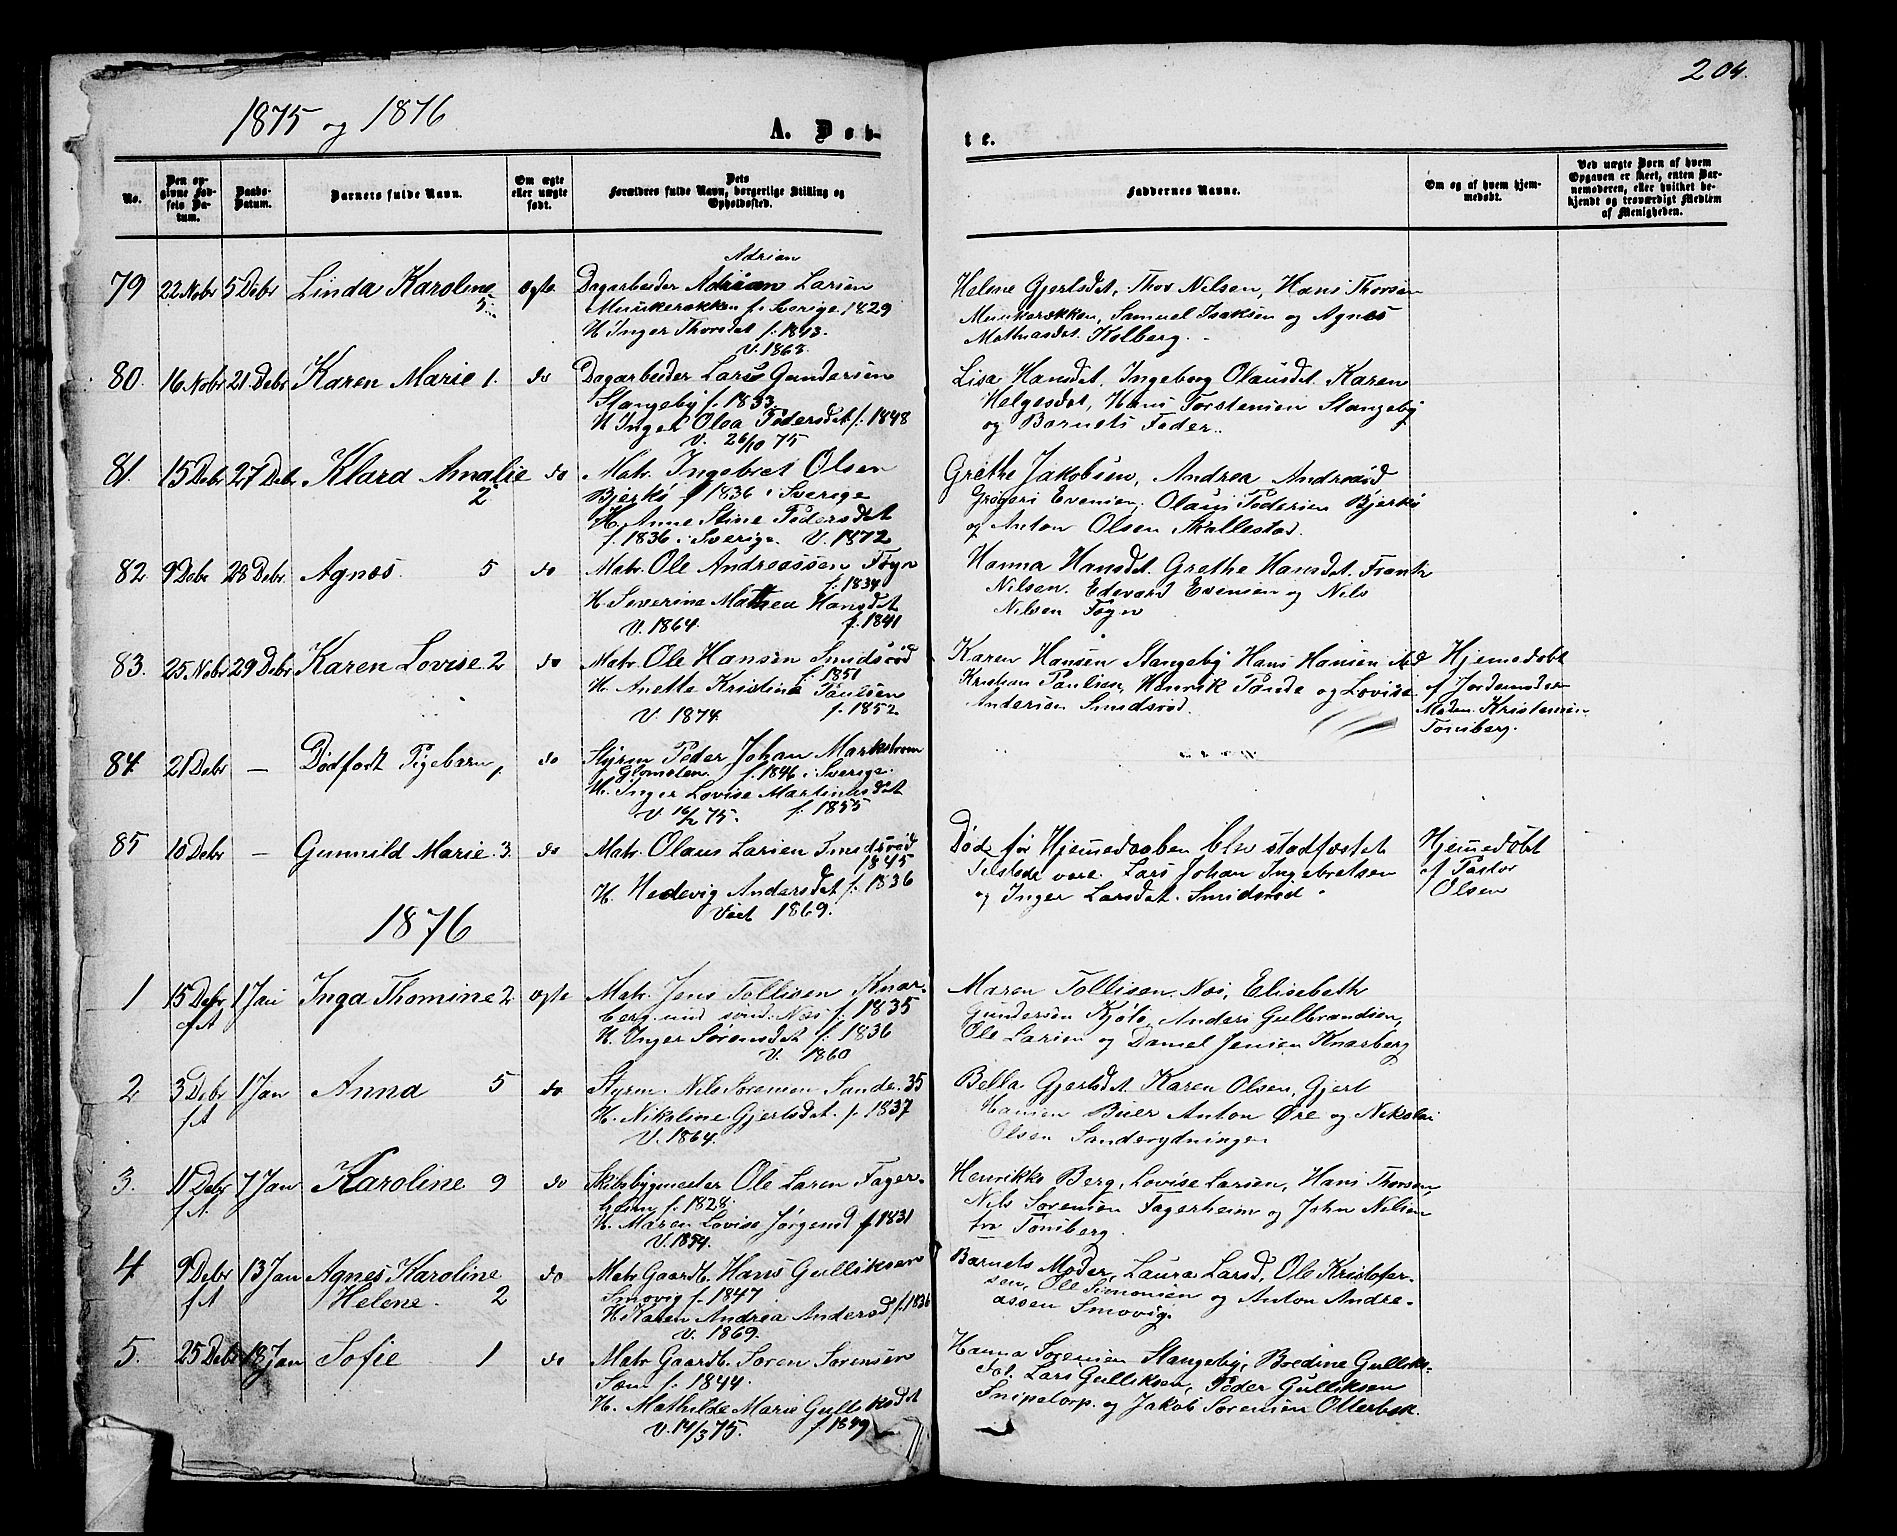 204.
1875 og 1876
A. Døb-
te.
No.
Den op-
givne Fød-
sels Da-
tum.
Daabs-
Datum.
Barnets fulde Navn.
Om ægte
eller uægte
født.
Dets
Forældres fulde Navn, borgerlige Stilling og
Opholdssted.
Faddernes Navne.
Om og af hvem hjem-
medøbt.
Ved uægte Børn af hvem
Opgaven er skeet, enten Bar-
nemoderen, eller hvilket be-
kjendt og troværdigt Medlem
af Menigheden.
Adrian
79 22 Nobr 5 Debr Linda Karoline ægte Dagarbeider Adrian Larsen
5. Munkerækken f. Sverige 1829
H. Inger Thorsdet f. 1843.
V. 1863.
Helene Gjertsdet, Thor Nilsen, Hans Thorsen
Munkerækken, Samuel Isaksen og Agnes
Mathiasdet. Kolberg.
80. 16 Nobr 21 Debr Karen Marie 1. do Dagarbeider Lars Gundersen
Stangeby f. 1833.
H. Inger Olea Pedersdet f. 1848
V. 26/10 75
Lisa Hansdet, Ingeborg Olausdet. Karen
Helgesdet, Hans Torstensen Stangeby
og Barnets Fader.
81. 15 Debr 27 Debr Klara Amalie do Matr. Ingebret Olsen
2 Bjerkø f 1836 i Sverige
H. Anne Stine Pedersdet
f. 1836 i Sverige. V. 1872
Grethe Jakobsen, Andrea Andreasd
Gregers Evensen, Olaus Pedersen Bjerkø
og Anton Olsen Skallestad.
82 9 Debr 28 Debr. Agnes. 5 do Matr. Ole Andreassen Føyn
f. 1834
H. Severine Mathea Hansdet
V. 1864. f. 1841
Hanna Hansdt. Grethe Hansdet. Frantz
Nilsen. Edevard Evensen og Nils
Nilsen Føyn
83. 25 Nobr 29 Debr Karen Lovise 2 do Matr. Ole Hansen Smidsrød
f. 1851
H. Anette Kristine Paulsen
V. 1874. f. 1852
Karen Hansen Stangeby Hans Hansen
Kristian Paulsen, Henrik Tønde og Lovise
Andersen Smidsrød.
Hjemedøbt
af Jordemoder
Maden Kristensen
Tønsberg.
84. 21 Debr — Dødfødt Pigebarn 1 do Styrm Peder Johan Markstrøm
Glomsten. f. 1846 i Sverige.
H. Inger Lovise Martinusdet
V 75. f. 1855
85 10 Debr — Gunnild Marie. 3. do Matr. Olaus Larsen Smidsrød
1845
H. Hedevig Andersdet f. 1836
Viet 1869.
Døde før Hjemedaaben blev stadfæstet
Tilstede vare. Lars Johan Ingebretsen
og Inger Larsdet. Smidsrød
Hjemedøbt
af Pastor
Olsen
1876
1 15 Debr 1 Jan Inga Thomine 2 ægte Matr. Jens Tollisen Knar-
f. A berg f. 1835
H. Inger Sørensdet f. 1836
V. 1860
Maren Tollisen. Næs, Elisebeth
Gundersen Kjølø Anders Gulbrandsen,
Ole Larsen og Daniel Jensen Knarberg
2 3 Debr 1 Jan Anna 5 do Styrm. Nils Sørensen Sande. 35
f. A H. Nikoline Gjertsdet. f. 1837
V. 1864.
Bella Gjertsdet. Karen Olsen, Gjert
Hansen Buer Anton Øre og Nikolai
Olsen Sanderydningen
3. 11 Debr 7 Jan Karoline 9 do Skibsbygmester Ole Larsen Fager-
f. A heim f. 1828.
H. Maren Lovise Jørgensd f 1831
V. 1854.
Henrikke Berg, Lovise Larsen, Hans Thorsen,
Nils Sørensen Fagerheim og John Nilsen
fra Tønsberg.
4. 9 Debr 13 Jan Agnes Karoline do Matr Gaardb. Hans Gulliksen
f. A Helene. 2 Smovig f. 1847
H. Karen Andrea Andersd f. 1836
V. 1869.
Barnets Moder, Laura Larsd, Ole Kristofer-
sen, Ole Simonsen og Anton Andre-
assen Smovig.
5. 25 Debr 18 Jan Sofie 1 do Matr Gaardb. Søren Sørensen
Sæm f. 1844.
H. Mathilde Marie Gulliksdet
V. 14/3 75. f 1849
Hanna Sørensen Stangeby, Bredine Gulliks-
Lars Gulliksen, Peder Gulliksen
Snipetorp. og Jakob Sørensen Otterbek.